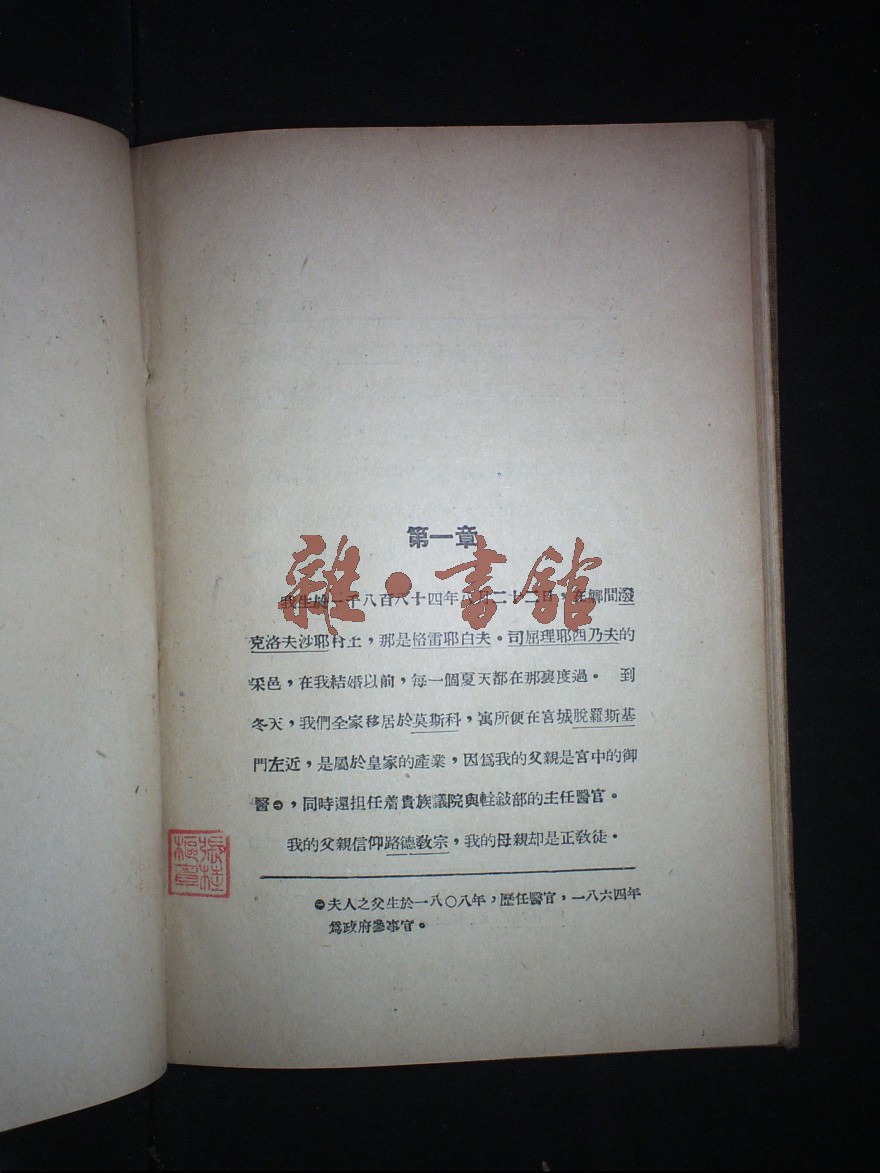 第一章
雜·書館
我生於一千八百八十四年八月二十二日，在鄉間潑
克洛夫沙耶村上，那是格雷耶白夫·司屈理耶西乃夫的
采邑，在我結婚以前，每一個夏天都在那裏度過。 到
冬天，我們全家移居於莫斯科，寓所便在宮城脫羅斯基
門左近，是屬於皇家的產業，因爲我的父親是宮中的御
醫㊀，同時還担任着貴族議院與輇敍部的主任醫官。
我的父親信仰路德敎宗，我的母親却是正敎徒·
㊀夫人之父生於一八〇八年，歷任醫官，一八六四年
爲政府參事官。